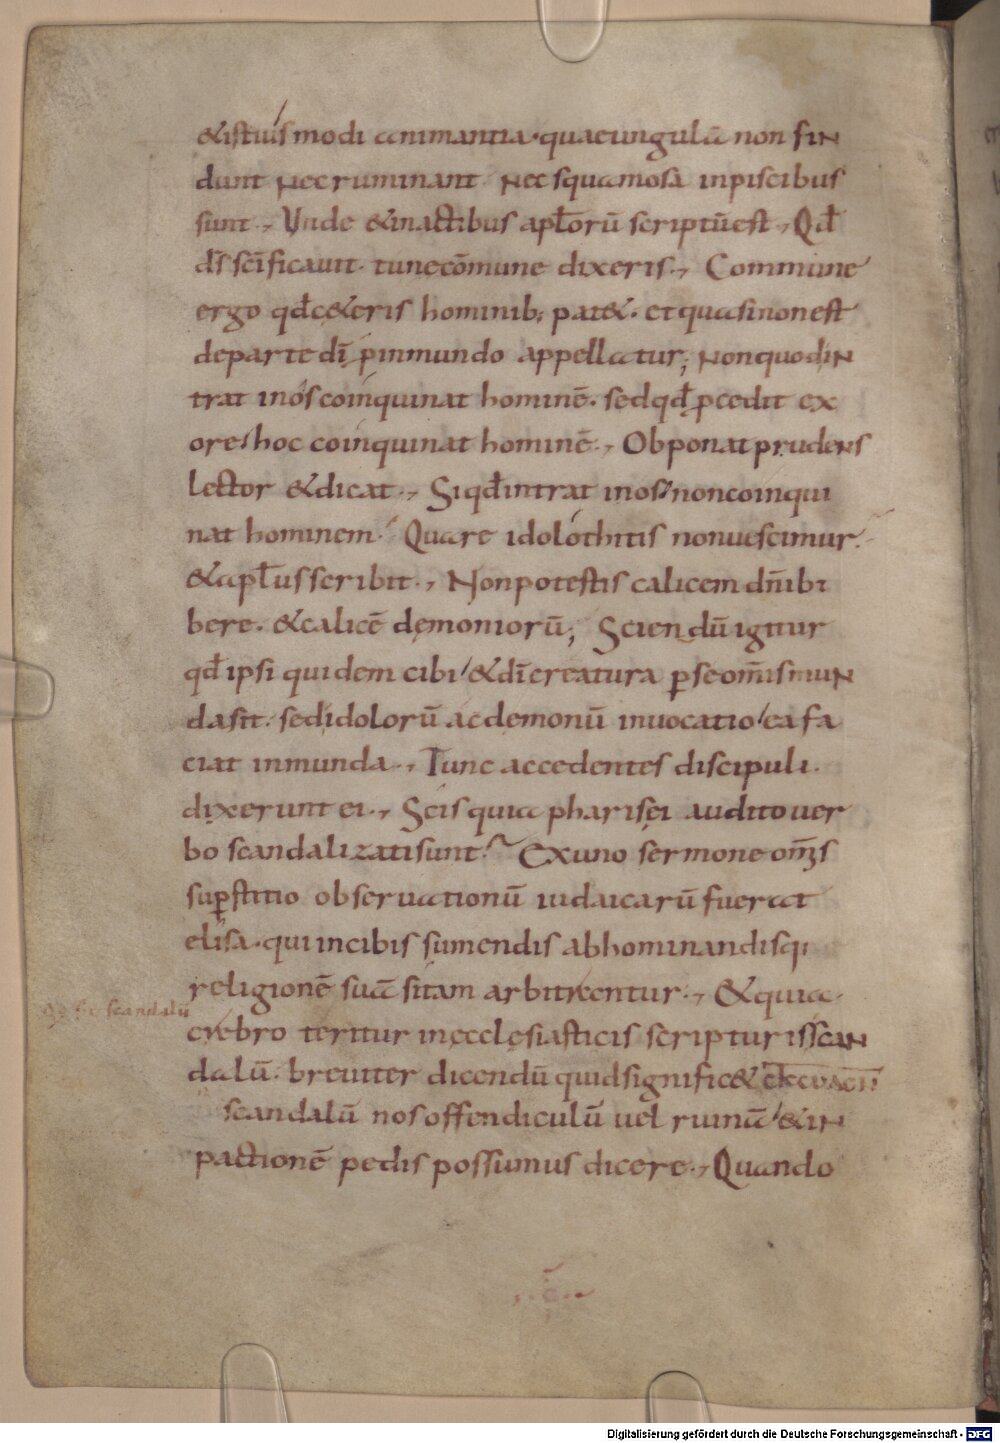 &istiusmodi animantia. quae ungulā non fin
dunt nec ruminant nec squamosa in piscibus
sunt., Unde & in actibus apl̄orū scriptū est., Qd̄
dſ̄ sc̄ificauit. tu ne cōmune dixeris., Commune
ergo qd̄ c&eris hominib; pat&. et quasi non est
de parte dī p̄ inmundo appellatur; non quod in
trat in os coinquinat hominē. sed qd̄ p̄cedit ex
ore hoc coinquinat hominē., Obponat prudens
lector & dicat., Si qd̄ intrat in os non coinqui
nat hominem. Quare idolothitis non uescimur.
& apl̄us scribit., Non potestis calicem dn̄i bi
bere. & calicē demoniorū; Sciendū igitur
qd̄ ipsi quidem cibi & dī creatura p̱ se om̄is mun
da sit. sed idolorū ac demonū inuocatio ea fa
ciat inmunda., Tunc accedentes discipuli.
dixerunt ei., Scis quia pharisęi audito uer
bo scandalizati sunt. Ex uno sermone om̄s
sup̱stitio obseruationū iudaicarū fuerat
elisa. qui in cibis sumendis abhominandisq;
religionē suā sitam arbitrentur., & quia
crebro teritur in ęcclesiasticis scripturis scan
dalū. breuiter dicendū quid signific&
scandalū nos offendiculū uel ruinā & in
pactionē pedis possumus dicere., Quando
scandalū
Digitalisierung gefördert durch die Deutsche Forschungsgemeinschaft - DFG